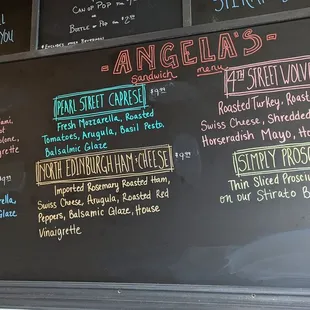 Can of Pop $1
or
Bottle of Pop $2
Angela's
Sandwich menu
Pearl Street Caprese $9.99
Fresh Mozzarella, Roasted
Tomatoes, Arugula, Basil Pesto,
Balsalmic Glaze
North Edinburgh Ham & Cheese $9.99
Imported Rosemary Roasted Ham,
Swiss Cheese, Arugula, Roasted Red
Peppers, Balsamic Glaze, House
Vinaigrette
4th Street Wolv
Roasted Turkey, Roas
Swiss Cheese, Shredded
Horseradish Mayo, Ho
Simply Prosc
Thin Sliced Prosciu
on our Stirato B